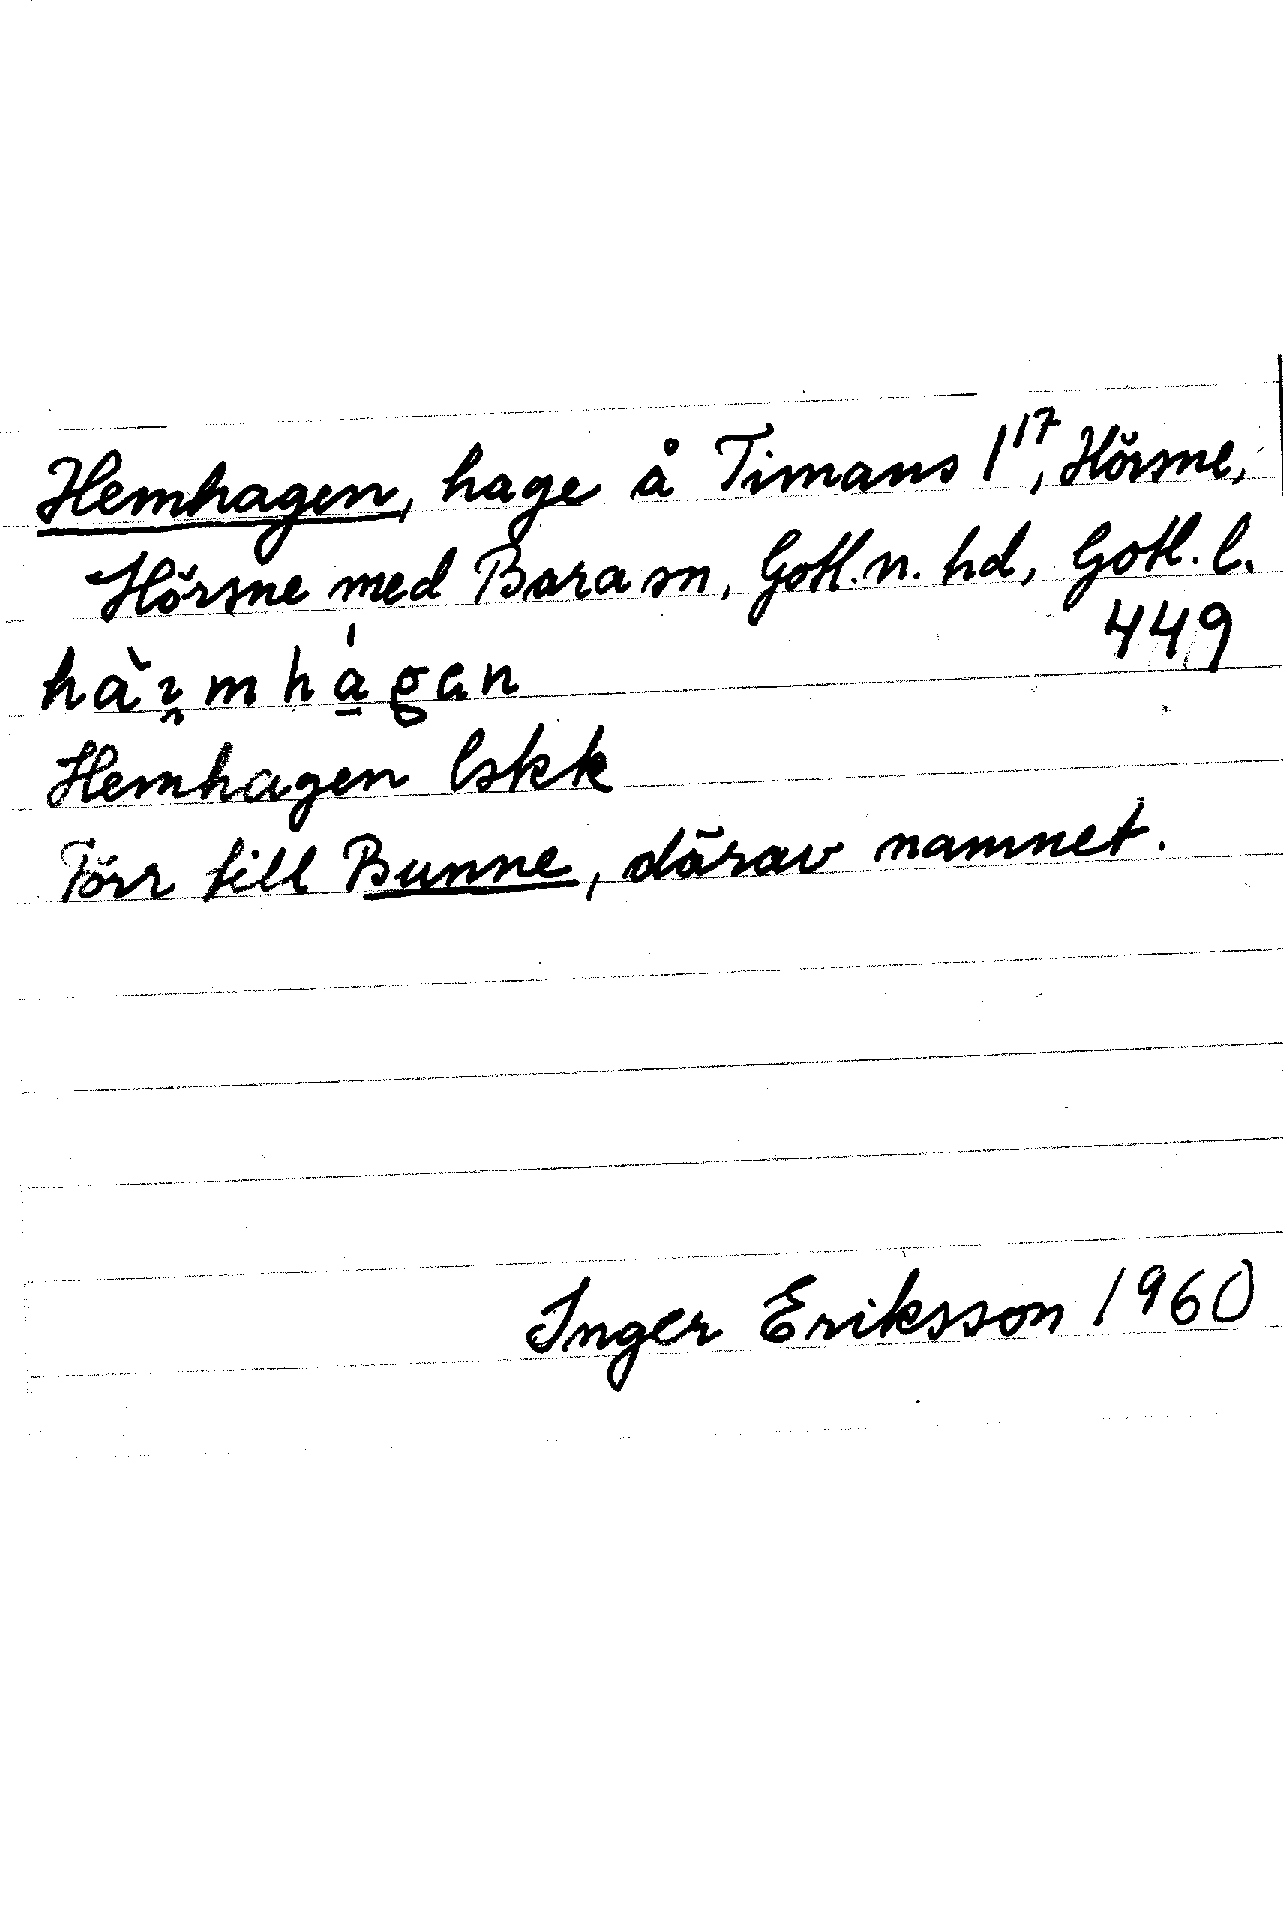 Hemhagen, hage å Timans 1¹⁷, Hörsne,
Hörsne med Bara sn, Gotl. n. hd, Gotl. l.
449
hàı̯mhágan
Hemhagen lskk
Förr till Bunne, därav namnet.
Inger Eriksson 1960